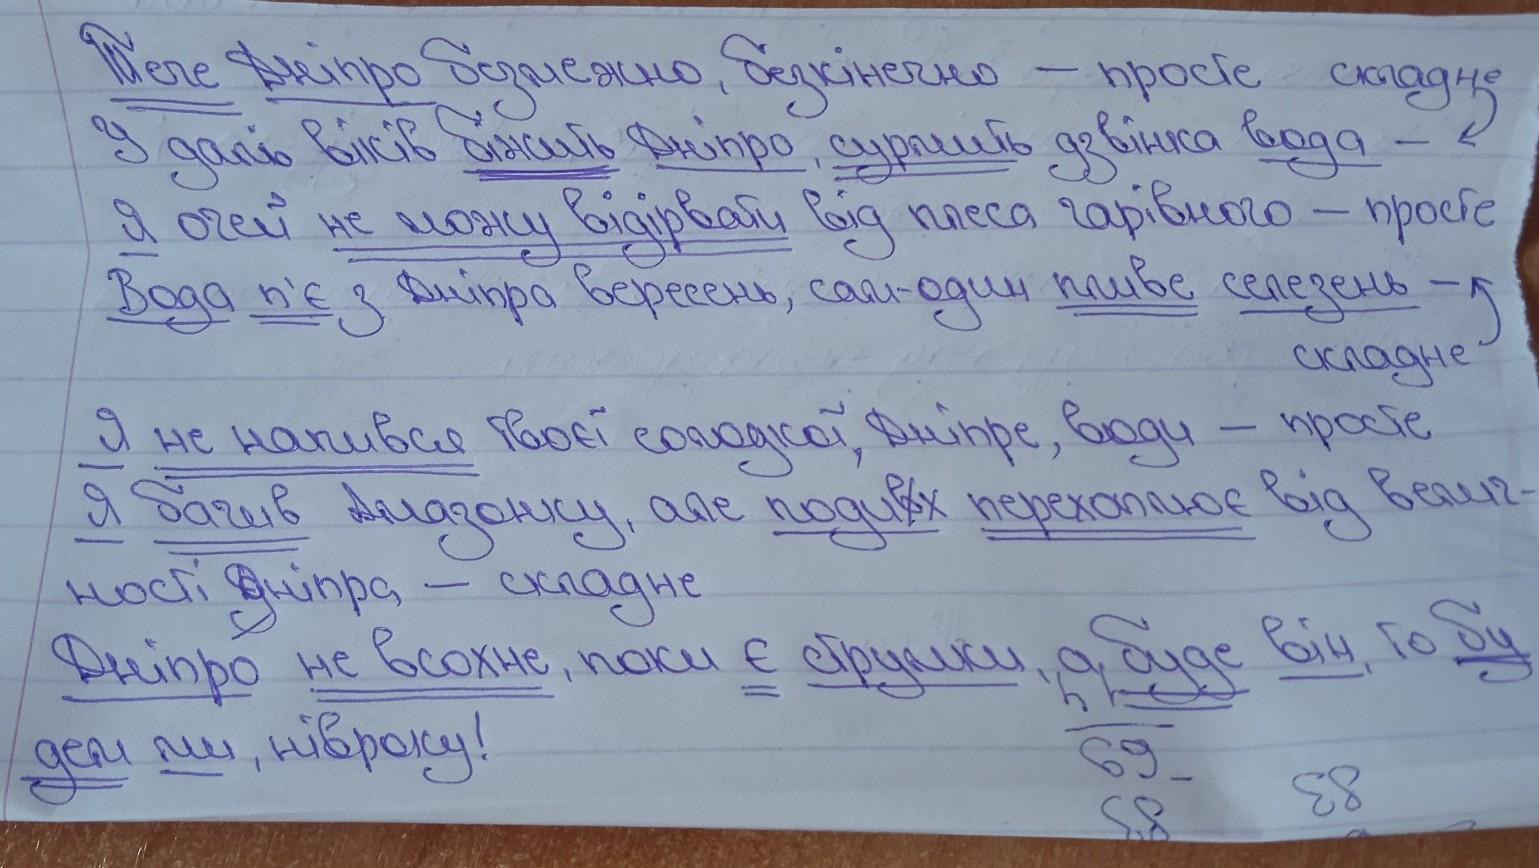 Тече Дніпро безмежно, безкінечно – просте складне
У даль віків біжить Дніпро, сурмить дзвінка вода –
Я очей не можу відірвати від плеса чарівного – просте
Вода п'є з Дніпра вересень, сам-один пливе селезень –
складне
Я не напився твоєї солодкої, Дніпре, води – просте
Я бачив Амазонку, але подих перехоплює від велич-
ності Дніпра – складне
Дніпро не всохне, поки є струмки, а буде він, то бу
дем ми, нівроку!
14
69
83
85